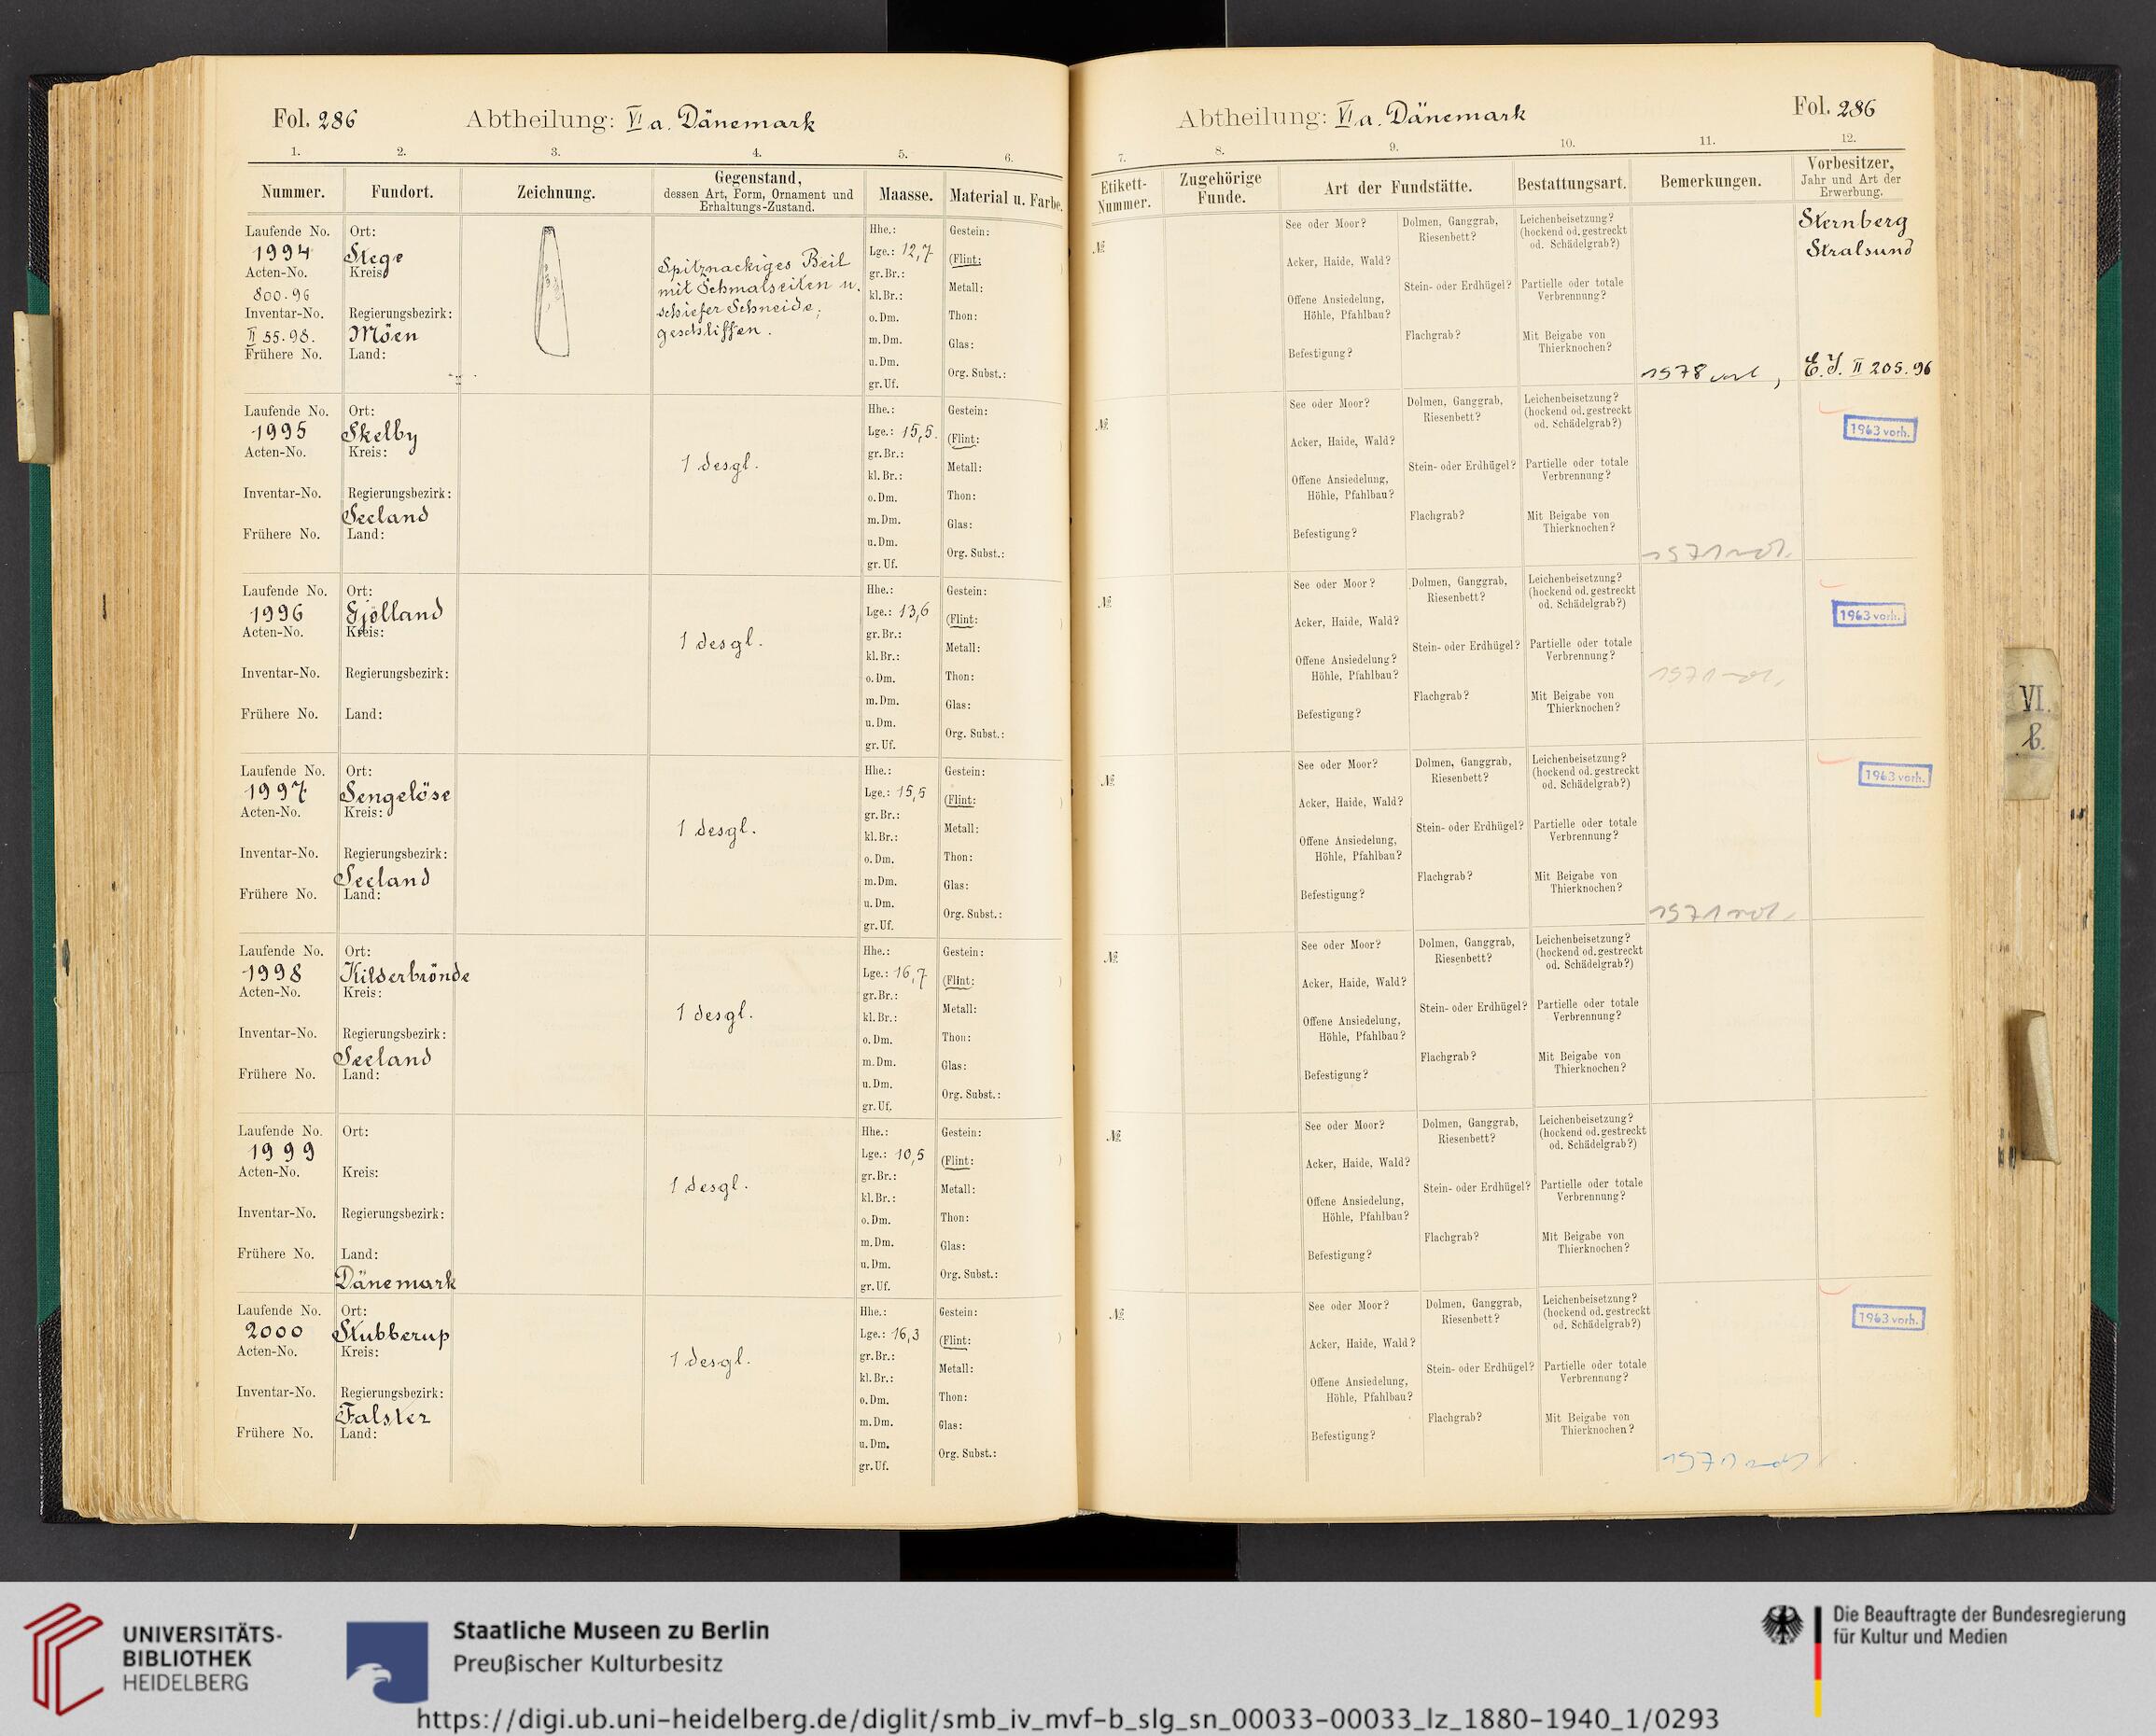 Fol. 286 Abtheilung: VI a. Dänemark
1. 2. 3. 4. 5. 6.
Nummer. Fundort. Zeichnung. Gegenstand, dessen Art, Form, Ornament und Erhaltungs-Zustand. Maasse. Material u. Farbe.
Laufende No. 1994
Acten-No. 800.96
Inventar-No. II 55.98.
Frühere No.
Ort: Stege
Kreis
Regierungsbezirk: Möen
Land:
Spitznackiges Beil
mit Schmalseiten u.
schiefer Schneide,
geschliffen.
Hhe.:
Lge.: 12,7
gr. Br.:
kl. Br.:
o. Dm.
m. Dm.
u. Dm.
gr. Uf.
Gestein:
(Flint: )
Metall:
Thon:
Glas:
Org. Subst.:
Laufende No. 1995
Acten-No.
Inventar-No.
Frühere No.
Ort: Skelby
Kreis:
Regierungsbezirk: Seeland
Land:
1 desgl.
Hhe.:
Lge.: 15,5.
gr. Br.:
kl. Br.:
o. Dm.
m. Dm.
u. Dm.
gr. Uf.
Gestein:
(Flint: )
Metall:
Thon:
Glas:
Org. Subst.:
Laufende No. 1996
Acten-No.
Inventar-No.
Frühere No.
Ort: Gjölland
Kreis:
Regierungsbezirk:
Land:
1 desgl.
Hhe.:
Lge.: 13,6
gr. Br.:
kl. Br.:
o. Dm.
m. Dm.
u. Dm.
gr. Uf.
Gestein:
(Flint: )
Metall:
Thon:
Glas:
Org. Subst.:
Laufende No. 1997
Acten-No.
Inventar-No.
Frühere No.
Ort: Sengelöse
Kreis:
Regierungsbezirk: Seeland
Land:
1 desgl.
Hhe.:
Lge.: 15,5
gr. Br.:
kl. Br.:
o. Dm.
m. Dm.
u. Dm.
gr. Uf.
Gestein:
(Flint: )
Metall:
Thon:
Glas:
Org. Subst.:
Laufende No. 1998
Acten-No.
Inventar-No.
Frühere No.
Ort: Kilderbrönde
Kreis:
Regierungsbezirk: Seeland
Land:
1 desgl.
Hhe.:
Lge.: 16,7
gr. Br.:
kl. Br.:
o. Dm.
m. Dm.
u. Dm.
gr. Uf.
Gestein:
(Flint: )
Metall:
Thon:
Glas:
Org. Subst.:
Laufende No. 1999
Acten-No.
Inventar-No.
Frühere No.
Ort:
Kreis:
Regierungsbezirk:
Land: Dänemark
1 desgl.
Hhe.:
Lge.: 10,5
gr. Br.:
kl. Br.:
o. Dm.
m. Dm.
u. Dm.
gr. Uf.
Gestein:
(Flint: )
Metall:
Thon:
Glas:
Org. Subst.:
Laufende No. 2000
Acten-No.
Inventar-No.
Frühere No.
Ort: Stubberup
Kreis:
Regierungsbezirk: Falster
Land:
1 desgl.
Hhe.:
Lge.: 16,3
gr. Br.:
kl. Br.:
o. Dm.
m. Dm.
u. Dm.
gr. Uf.
Gestein:
(Flint: )
Metall:
Thon:
Glas:
Org. Subst.:
Abtheilung: VI a. Dänemark Fol. 286
7. 8. 9. 10. 11. 12.
Etikett-Nummer. Zugehörige Funde. Art der Fundstätte. Bestattungsart. Bemerkungen. Vorbesitzer, Jahr und Art der Erwerbung.
№
See oder Moor?
Acker, Haide, Wald?
Offene Ansiedelung,
Höhle, Pfahlbau?
Befestigung?
Dolmen, Ganggrab,
Riesenbett?
Stein- oder Erdhügel?
Flachgrab?
Leichenbeisetzung?
(hockend od. gestreckt
od. Schädelgrab?)
Partielle oder totale
Verbrennung?
Mit Beigabe von
Thierknochen?
1978
Sternberg
Stralsund
E. J. II 205.96
№
See oder Moor?
Acker, Haide, Wald?
Offene Ansiedelung,
Höhle, Pfahlbau?
Befestigung?
Dolmen, Ganggrab,
Riesenbett?
Stein- oder Erdhügel?
Flachgrab?
Leichenbeisetzung?
(hockend od. gestreckt
od. Schädelgrab?)
Partielle oder totale
Verbrennung?
Mit Beigabe von
Thierknochen?
1971
1963 vorh.
№
See oder Moor?
Acker, Haide, Wald?
Offene Ansiedelung?
Höhle, Pfahlbau?
Befestigung?
Dolmen, Ganggrab,
Riesenbett?
Stein- oder Erdhügel?
Flachgrab?
Leichenbeisetzung?
(hockend od. gestreckt
od. Schädelgrab?)
Partielle oder totale
Verbrennung?
Mit Beigabe von
Thierknochen?
1971
1963 vorh.
№
See oder Moor?
Acker, Haide, Wald?
Offene Ansiedelung,
Höhle, Pfahlbau?
Befestigung?
Dolmen, Ganggrab,
Riesenbett?
Stein- oder Erdhügel?
Flachgrab?
Leichenbeisetzung?
(hockend od. gestreckt
od. Schädelgrab?)
Partielle oder totale
Verbrennung?
Mit Beigabe von
Thierknochen?
1971
1963 vorh.
№
See oder Moor?
Acker, Haide, Wald?
Offene Ansiedelung,
Höhle, Pfahlbau?
Befestigung?
Dolmen, Ganggrab,
Riesenbett?
Stein- oder Erdhügel?
Flachgrab?
Leichenbeisetzung?
(hockend od. gestreckt
od. Schädelgrab?)
Partielle oder totale
Verbrennung?
Mit Beigabe von
Thierknochen?
№
See oder Moor?
Acker, Haide, Wald?
Offene Ansiedelung,
Höhle, Pfahlbau?
Befestigung?
Dolmen, Ganggrab,
Riesenbett?
Stein- oder Erdhügel?
Flachgrab?
Leichenbeisetzung?
(hockend od. gestreckt
od. Schädelgrab?)
Partielle oder totale
Verbrennung?
Mit Beigabe von
Thierknochen?
№
See oder Moor?
Acker, Haide, Wald?
Offene Ansiedelung,
Höhle, Pfahlbau?
Befestigung?
Dolmen, Ganggrab,
Riesenbett?
Stein- oder Erdhügel?
Flachgrab?
Leichenbeisetzung?
(hockend od. gestreckt
od. Schädelgrab?)
Partielle oder totale
Verbrennung?
Mit Beigabe von
Thierknochen?
1971
1963 vorh.
VI.
b.
UNIVERSITÄTS-
BIBLIOTHEK
HEIDELBERG
Staatliche Museen zu Berlin
Preußischer Kulturbesitz
Die Beauftragte der Bundesregierung
für Kultur und Medien
https://digi.ub.uni-heidelberg.de/diglit/smb_iv_mvf-b_slg_sn_00033-00033_lz_1880-1940_1/0293